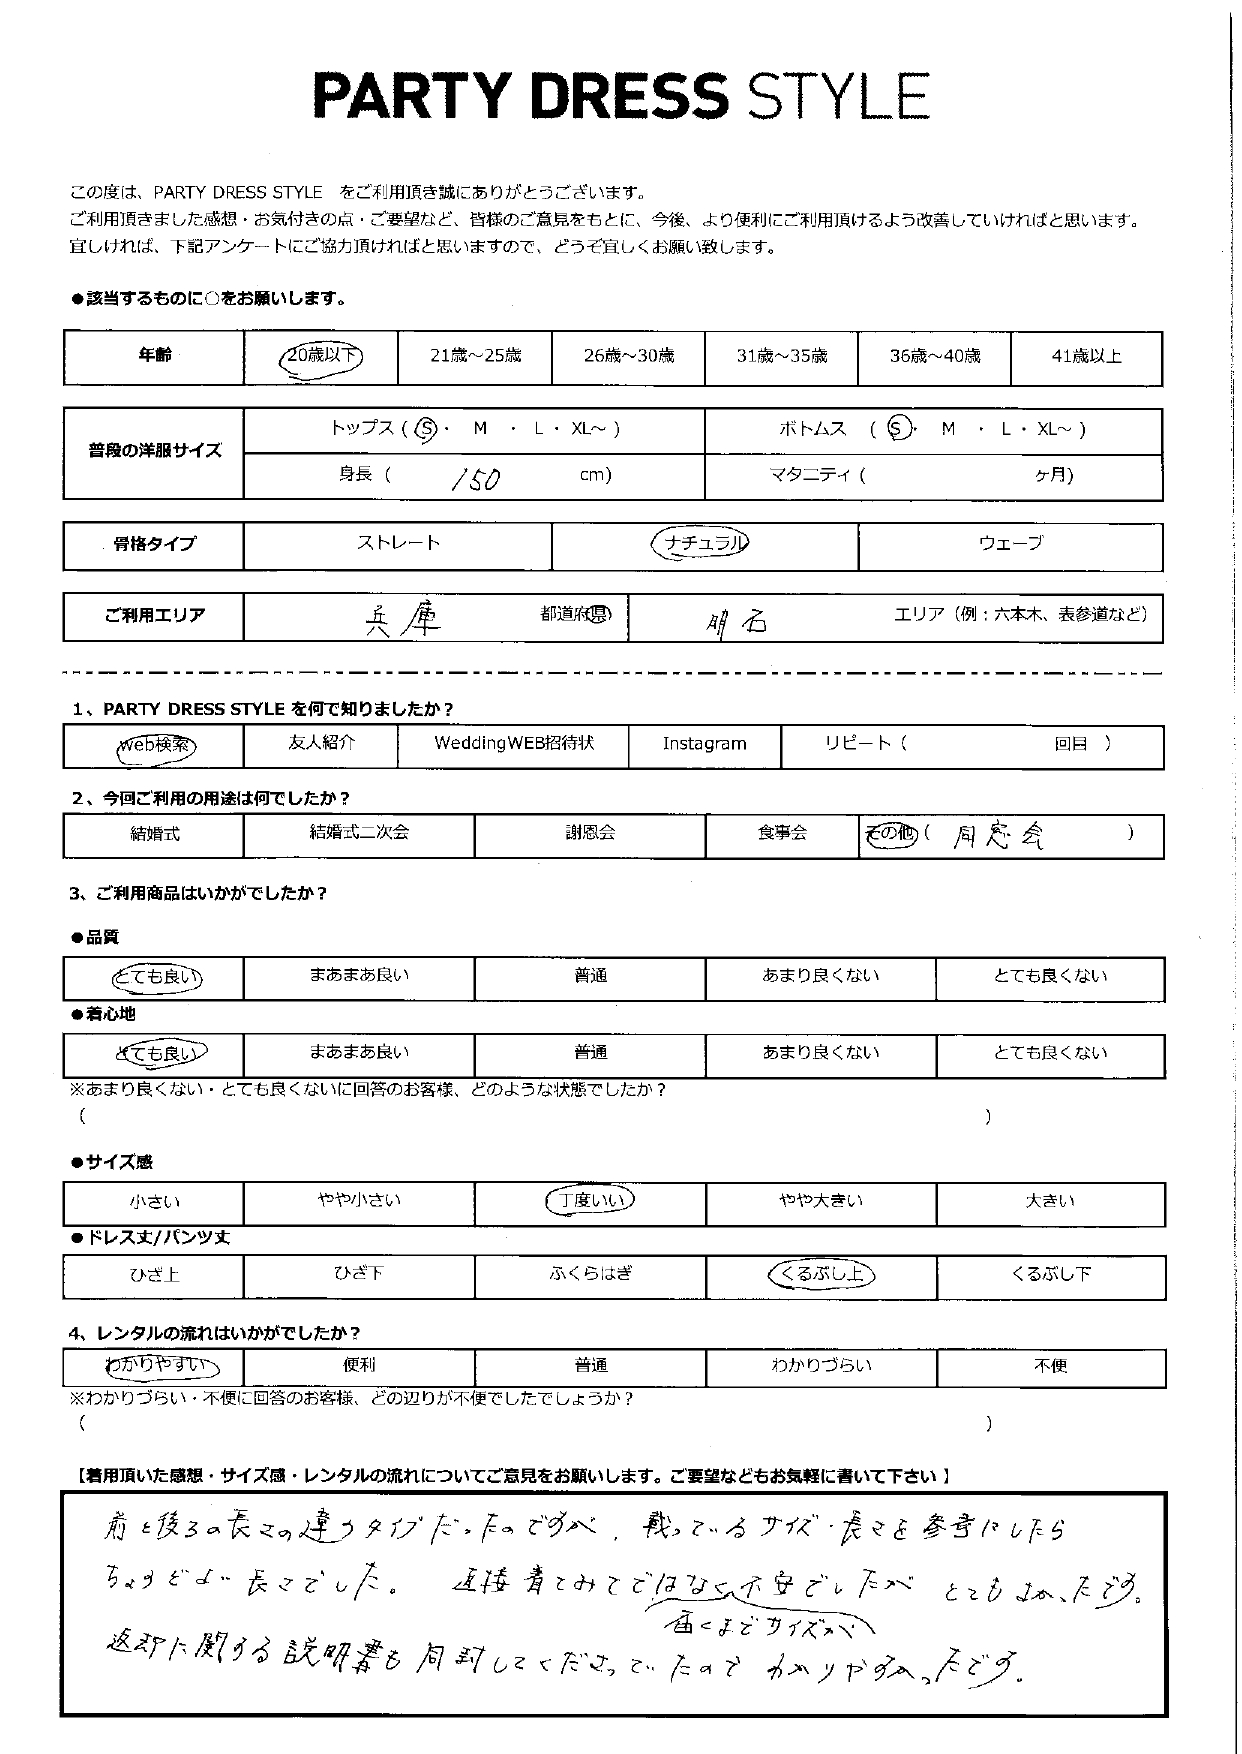 PARTY DRESS STYLE
この度は、PARTY DRESS STYLE をご利用頂き誠にありがとうございます。
ご利用頂きました感想・お気付きの点・ご要望など、皆様のご意見をもとに、今後、より便利にご利用頂けるよう改善していければと思います。
宜しければ、下記アンケートにご協力頂ければと思いますので、どうぞ宜しくお願い致します。
●該当するものに○をお願いします。
年齢 20歳以下 21歳～25歳 26歳～30歳 31歳～35歳 36歳～40歳 41歳以上
普段の洋服サイズ トップス ( S ・ M ・ L ・ XL～ ) ボトムス ( S ・ M ・ L ・ XL～ )
身長 ( 150 cm) マタニティ ( ヶ月)
骨格タイプ ストレート ナチュラル ウェーブ
ご利用エリア 兵庫 都道府県 明石 エリア（例：六本木、表参道など）
1、PARTY DRESS STYLE を何で知りましたか？
web検索 友人紹介 WeddingWEB招待状 Instagram リピート ( 回目 )
2、今回ご利用の用途は何でしたか？
結婚式 結婚式二次会 謝恩会 食事会 その他 ( 同窓会 )
3、ご利用商品はいかがでしたか？
●品質
とても良い まあまあ良い 普通 あまり良くない とても良くない
●着心地
とても良い まあまあ良い 普通 あまり良くない とても良くない
※あまり良くない・とても良くないに回答のお客様、どのような状態でしたか？
( )
●サイズ感
小さい やや小さい 丁度いい やや大きい 大きい
●ドレス丈/パンツ丈
ひざ上 ひざ下 ふくらはぎ くるぶし上 くるぶし下
4、レンタルの流れはいかがでしたか？
わかりやすい 便利 普通 わかりづらい 不便
※わかりづらい・不便に回答のお客様、どの辺りが不便でしたでしょうか？
( )
【着用頂いた感想・サイズ感・レンタルの流れについてご意見をお願いします。ご要望などもお気軽に書いて下さい 】
前と後ろの長さの違うタイプだったのですが、載っているサイズ・長さを参考にしたら
ちょうどよい長さでした。 直接着てみてではなく不安でしたが とてもよかったです。
届くまでサイズが
返却に関する説明書も同封してくださっていたので わかりやすかったです。